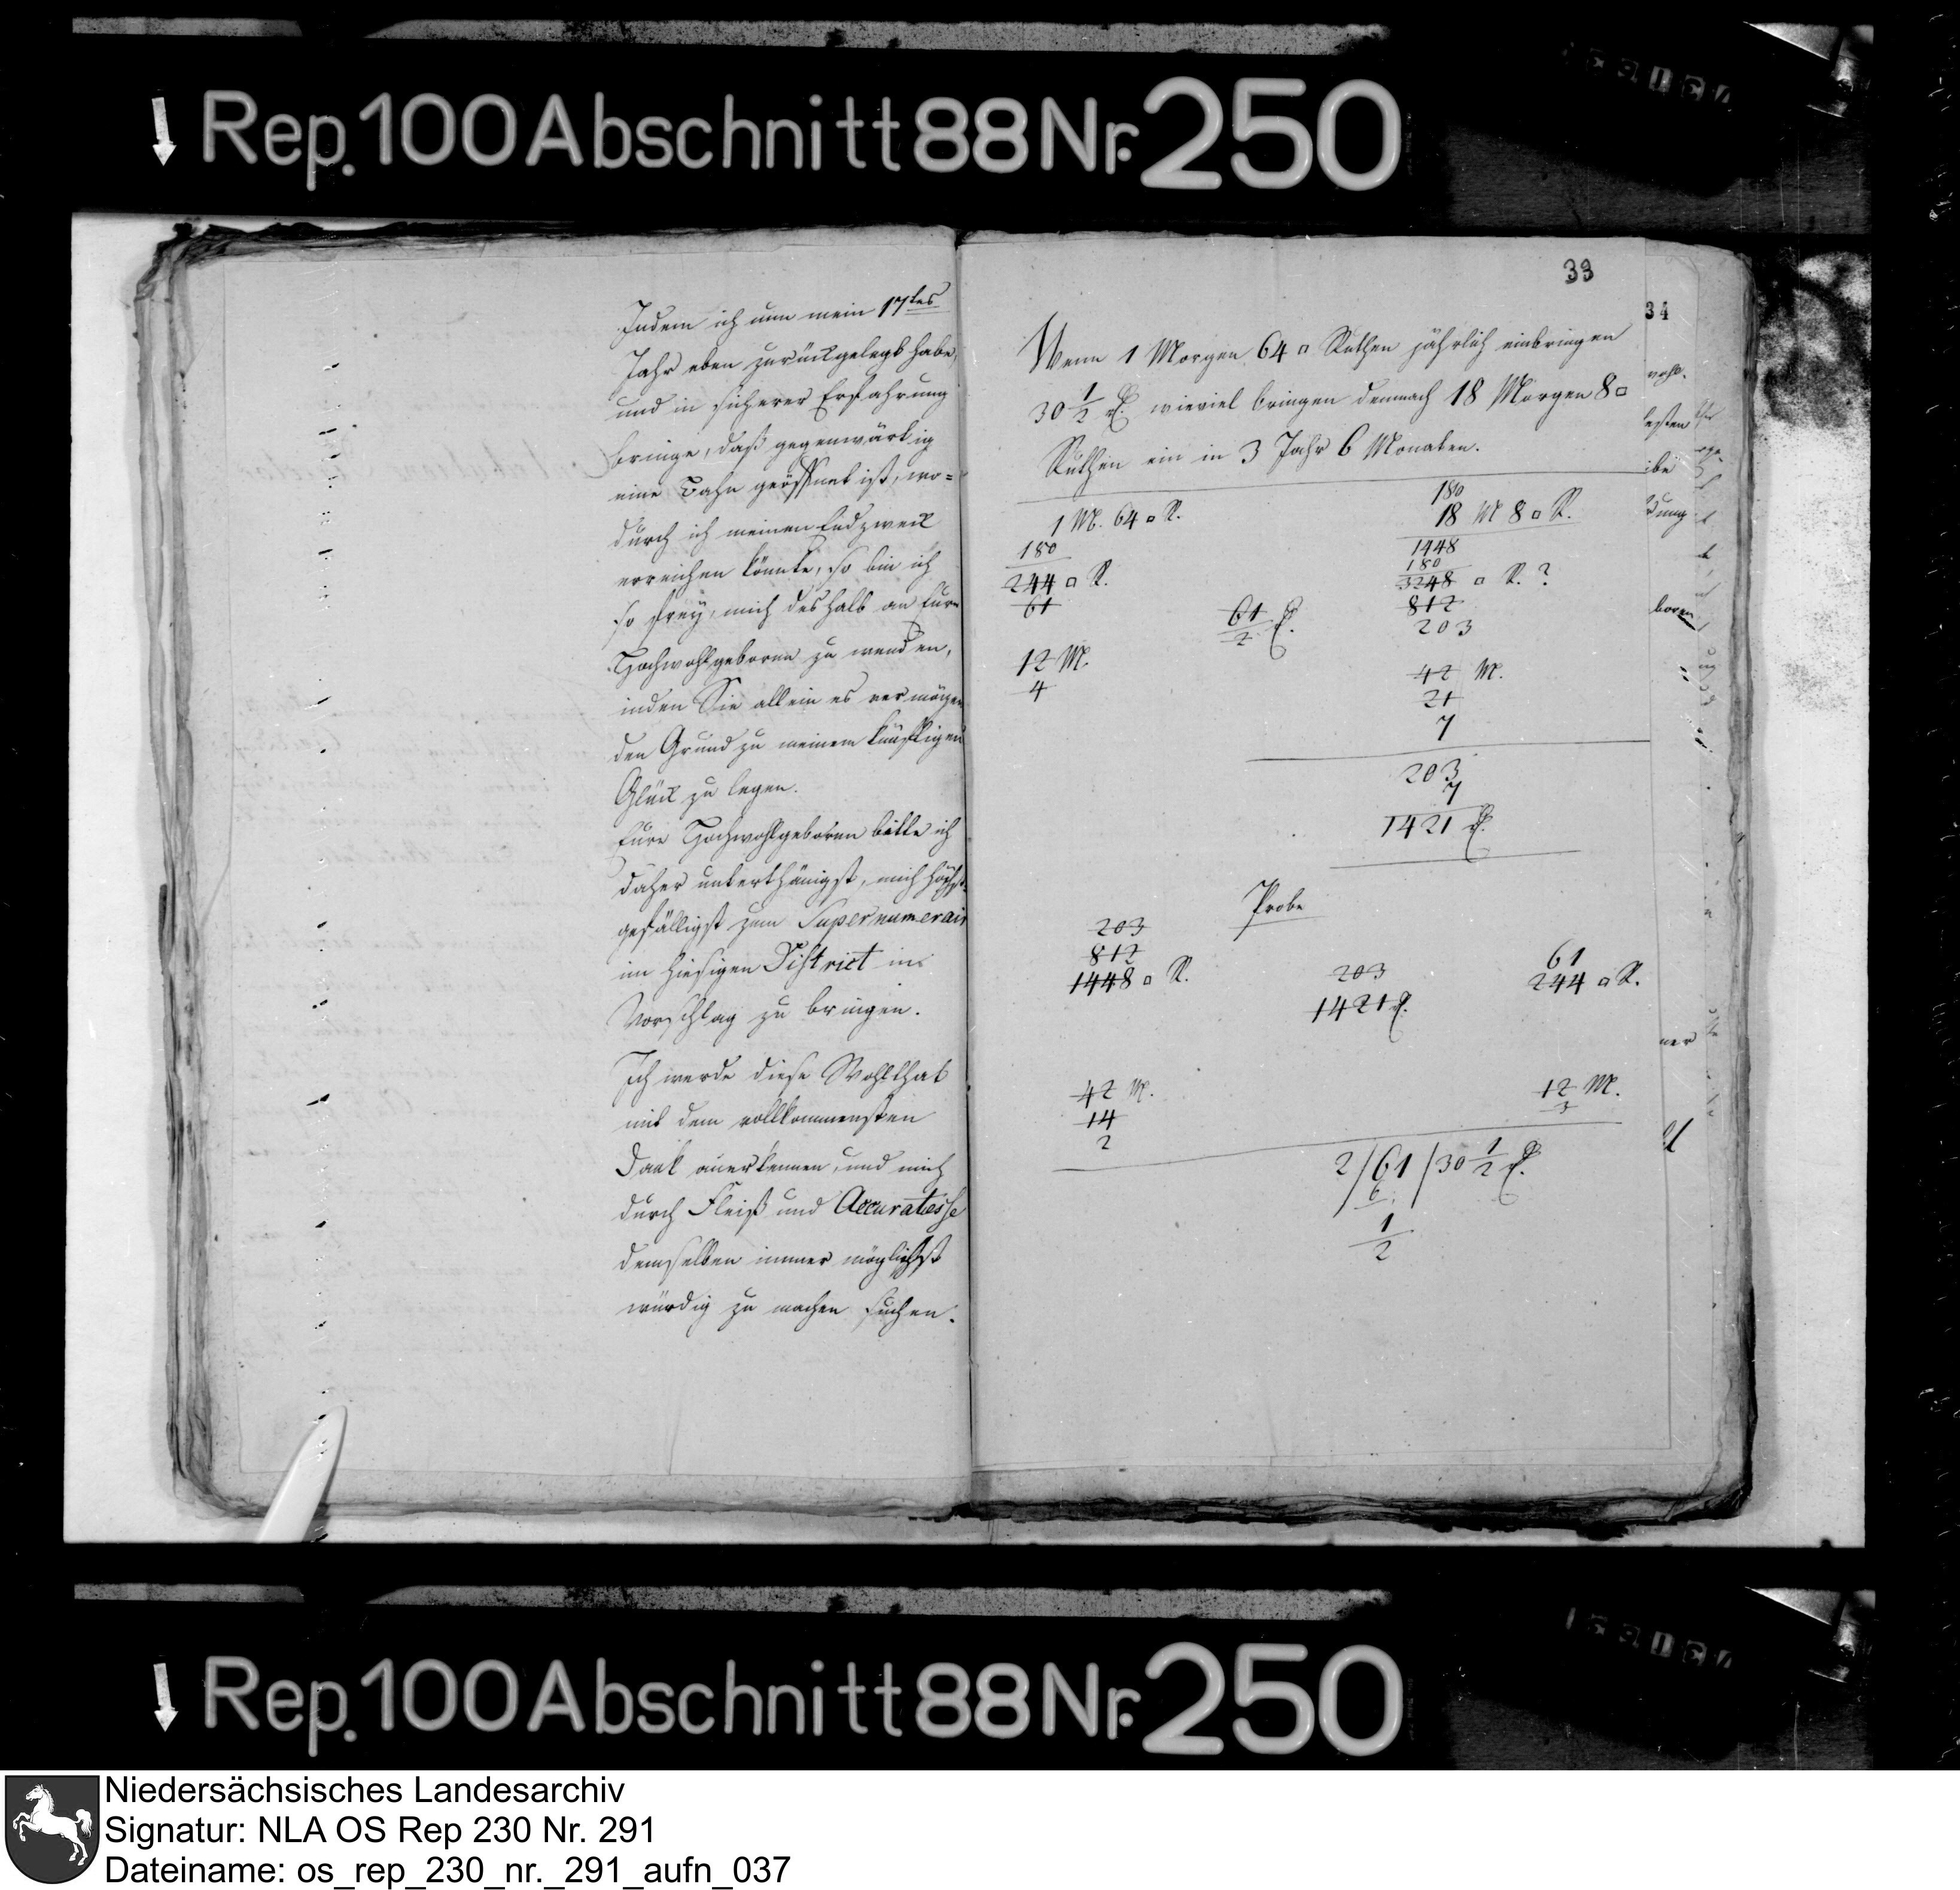 Rep. 100 Abschnitt 88 Nr. 250
Indem ich nun mein 17tes
Jahr eben zurückgelegt habe,
und in sicherer Erfahrung
bringe, daß gegenwärtig
eine Bahn geöffnet ist, wo=
durch ich meinen Endzweck
erreichen könnte, so bin ich
so frey, mich deshalb an Eure
Hochwohlgeboren zu wenden,
inden Sie allein es vermögen
den Grund zu meinem künftigen
Glück zu legen.
Eure Hochwohlgeboren bitte ich
daher unterthänigst, mich höchst=
gefälligst zum Supernumerair
im hiesigen District in
Vorschlag zu bringen.
Ich werde diese Wohlthat
mit dem vollkommensten
Dank anerkennen, und mich
durch Fleiß und Accuratesse
demselben immer möglichst
würdig zu machen suchen.
33
Wenn 1 Morgen 64 □ Ruthen jährlich einbringen
30 1/2 rf. wieviel bringen demnach 18 Morgen 8 □
Ruthen ein in 3 Jahr 6 Monaten.
180
1 M. 64 □ R. 18 M 8 □ R.
180 1448
180
244 □ R. 3248 □ R. ?
61 61/2 rf. 812
203
12 M. 42 M.
4 21
7
203
7
1421 rf.
Probe
203
812 61
1448 □ R. 203 244 □ R.
1421 rf.
42 M. 12 M.
14 3
2
2/61/30 1/2 rf.
6
1/2
34
esten
ibe
boren
ner
Rep. 100 Abschnitt 88 Nr. 250
Niedersächsisches Landesarchiv
Signatur: NLA OS Rep 230 Nr. 291
Dateiname: os_rep_230_nr._291_aufn_037